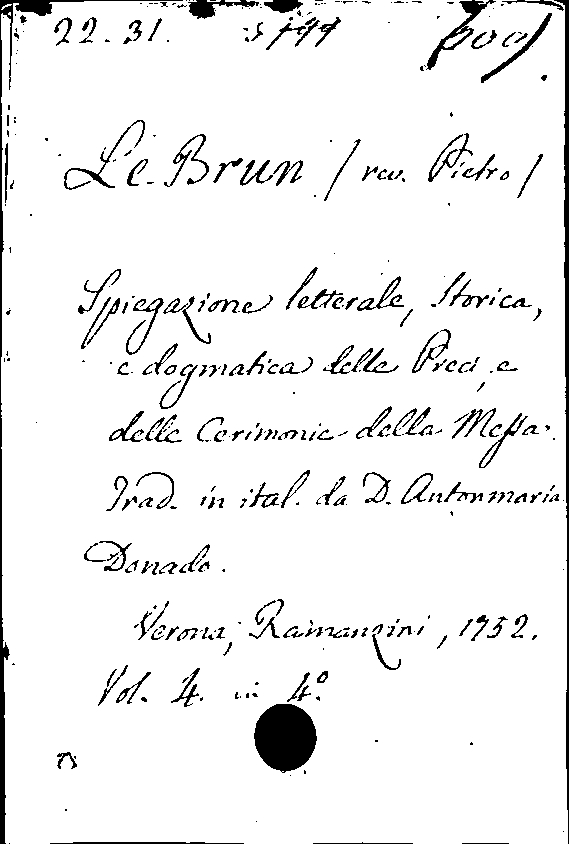 22.31.
Le-Brun / rev. Pietro /
Spiegazione letterale, Storica,
e dogmatica delle Preci, e
delle Cerimonie della Messa.
Trad. in ital. da D. Antonmaria
Donado.
Verona, Ramanzini, 1752.
Vol. 4. in 4º